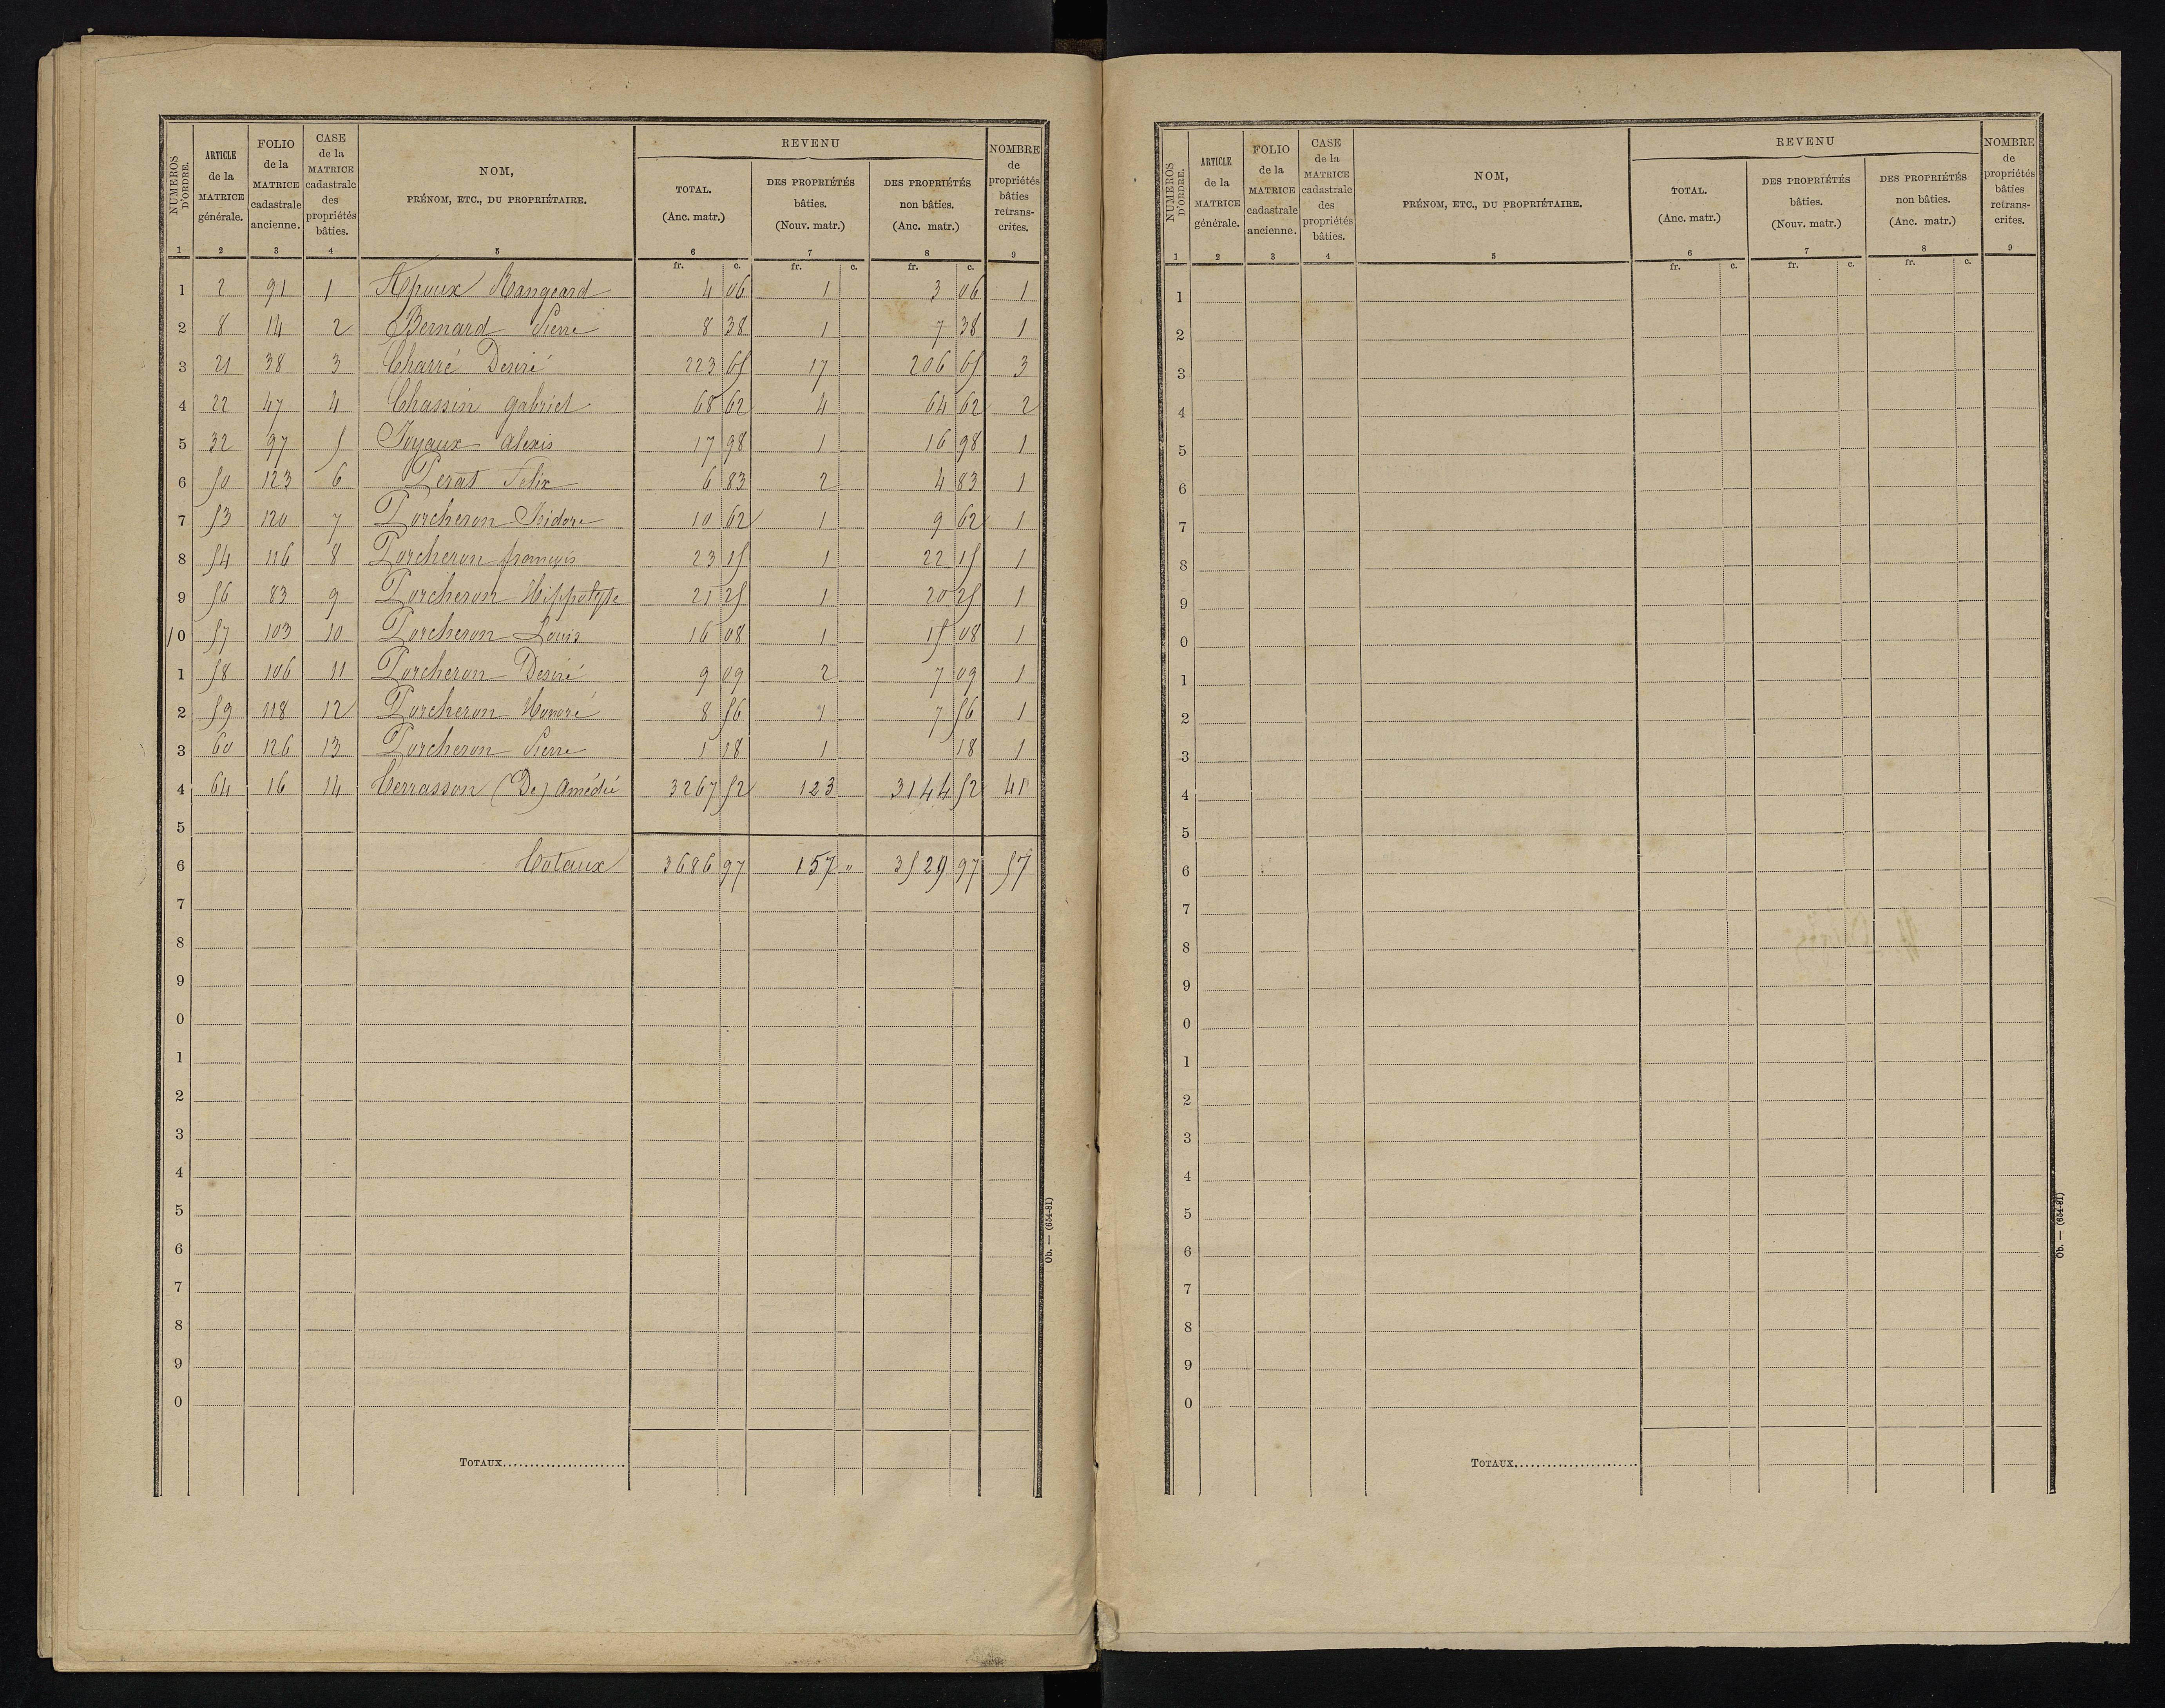 NUMÉROS D'ORDRE. | ARTICLE de la MATRICE générale. | FOLIO de la MATRICE cadastrale ancienne. | CASE de la MATRICE cadastrale des propriétés bâties. | NOM, PRÉNOM, ETC., DU PROPRIÉTAIRE. | REVENU | NOMBRE de propriétés bâties retrans-crites.
TOTAL. (Anc. matr.) | DES PROPRIÉTÉS bâties. (Nouv. matr.) | DES PROPRIÉTÉS non bâties. (Anc. matr.)
1 | 2 | 3 | 4 | 5 | 6 | 7 | 8 | 9
fr. | c. | fr. | c. | fr. | c.
1 | 2 | 91 | 1 | Rangeard | 4 | 06 | 1 | 3 | 06 | 1
2 | 8 | 14 | 2 | Bernard Pierre | 8 | 38 | 1 | 7 | 38 | 1
3 | 21 | 38 | 3 | Charré Desiré | 223 | 65 | 17 | 206 | 65 | 3
4 | 22 | 47 | 4 | Chassin Gabriel | 68 | 62 | 4 | 64 | 62 | 2
5 | 32 | 97 | 5 | Joyaux Alexis | 17 | 98 | 1 | 16 | 98 | 1
6 | 50 | 123 | 6 | Perat Felix | 6 | 83 | 2 | 4 | 83 | 1
7 | 53 | 120 | 7 | Porcheron Isidore | 10 | 62 | 1 | 9 | 62 | 1
8 | 54 | 116 | 8 | Porcheron françois | 23 | 15 | 1 | 22 | 15 | 1
9 | 56 | 83 | 9 | Porcheron Hippolyte | 21 | 25 | 1 | 20 | 25 | 1
10 | 57 | 103 | 10 | Porcheron Louis | 16 | 08 | 1 | 15 | 08 | 1
1 | 58 | 106 | 11 | Porcheron Desiré | 9 | 09 | 2 | 7 | 09 | 1
2 | 59 | 118 | 12 | Porcheron Honoré | 8 | 56 | 1 | 7 | 56 | 1
3 | 60 | 126 | 13 | Porcheron Pierre | 1 | 18 | 1 | 18 | 1
4 | 64 | 16 | 14 | Terrasson (De) Amédée | 3267 | 52 | 123 | 3144 | 52 | 41
5
6 | Totaux | 3686 | 97 | 157 | " | 3529 | 97 | 57
7
8
9
0
1
2
3
4
5
6
7
8
9
0
TOTAUX
Ob. — (654-81)
NUMÉROS D'ORDRE. | ARTICLE de la MATRICE générale. | FOLIO de la MATRICE cadastrale ancienne. | CASE de la MATRICE cadastrale des propriétés bâties. | NOM, PRÉNOM, ETC., DU PROPRIÉTAIRE. | REVENU | NOMBRE de propriétés bâties retrans-crites.
TOTAL. (Anc. matr.) | DES PROPRIÉTÉS bâties. (Nouv. matr.) | DES PROPRIÉTÉS non bâties. (Anc. matr.)
1 | 2 | 3 | 4 | 5 | 6 | 7 | 8 | 9
fr. | c. | fr. | c. | fr. | c.
1
2
3
4
5
6
7
8
9
0
1
2
3
4
5
6
7
8
9
0
1
2
3
4
5
6
7
8
9
0
TOTAUX
Ob. — (654-81)